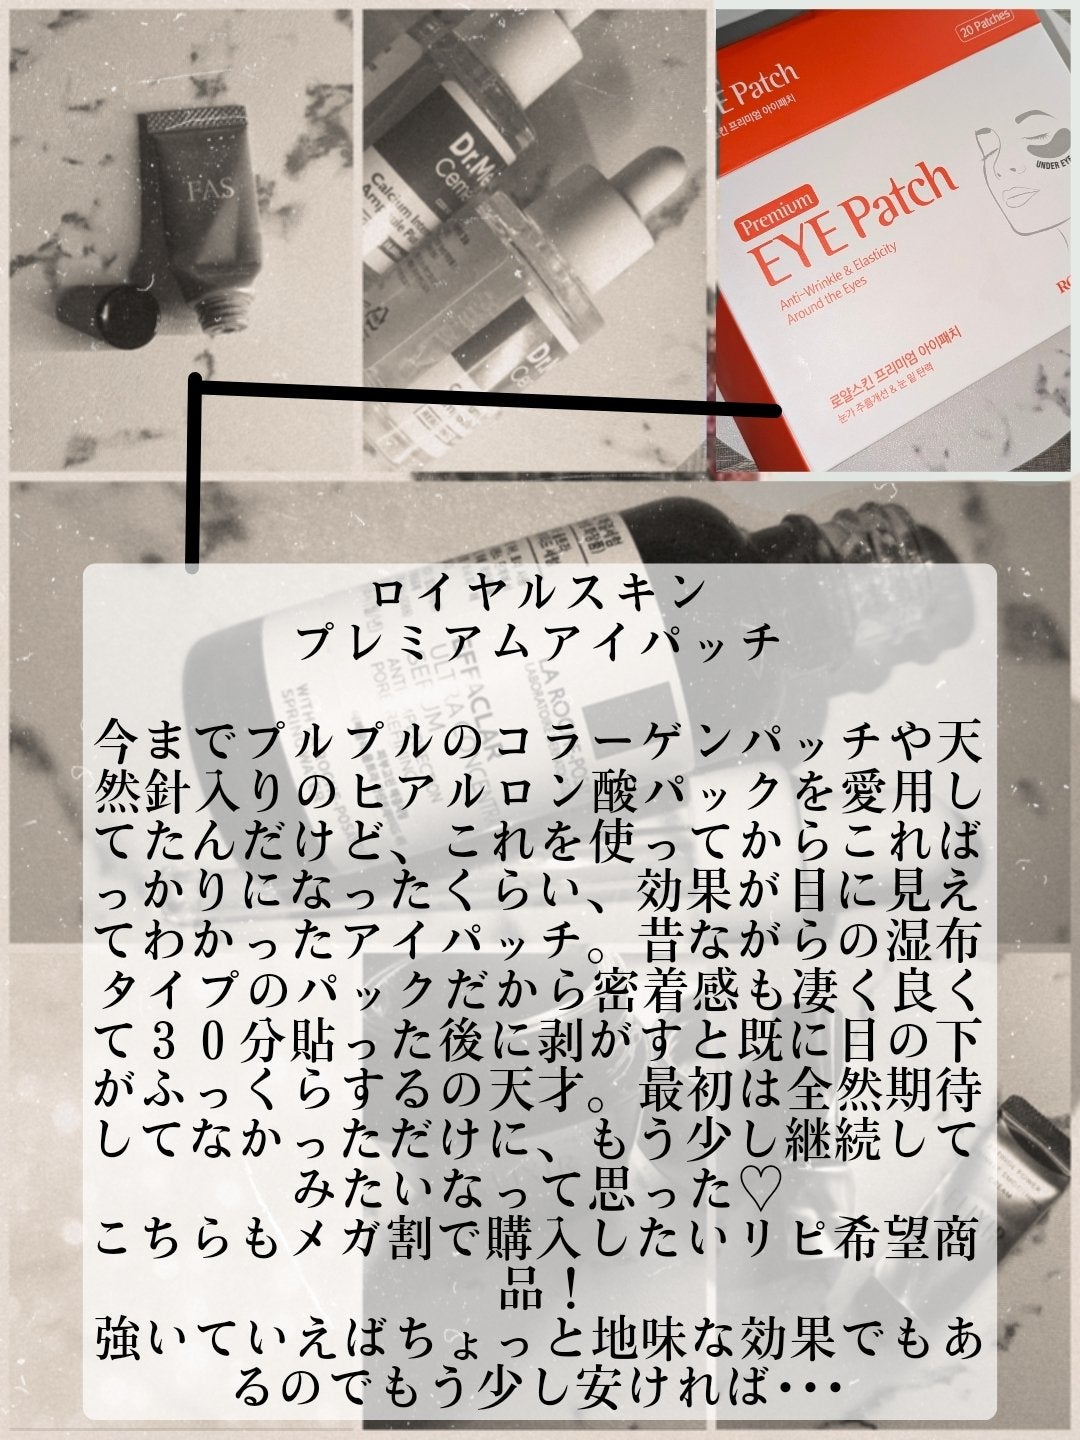 FAS
Dr.Me
Calcium
20 Patches
EYE Patch
프리미엄 아이패치
Premium
EYE Patch
Anti-Wrinkle & Elasticity
Around the Eyes
UNDER EYE
로얄스킨 프리미엄 아이패치
눈가 주름개선 & 눈 밑 탄력
EFFACLAR
ULTRA
SERUM
LA ROCHE-PO
LABORATOIRE
ロイヤルスキン
プレミアムアイパッチ
今までプルプルのコラーゲンパッチや天
然針入りのヒアルロン酸パックを愛用し
てたんだけど、これを使ってからこれば
っかりになったくらい、効果が目に見え
てわかったアイパッチ。昔ながらの湿布
タイプのパックだから密着感も凄く良く
て30分貼った後に剥がすと既に目の下
がふっくらするの天才。最初は全然期待
してなかっただけに、もう少し継続して
みたいなって思った♡
こちらもメガ割で購入したいリピ希望商
品！
強いていえばちょっと地味な効果でもあ
るのでもう少し安ければ･･･